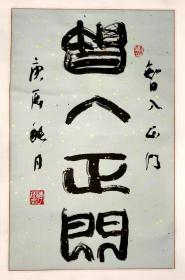 智入正門
智入正门
庚寅